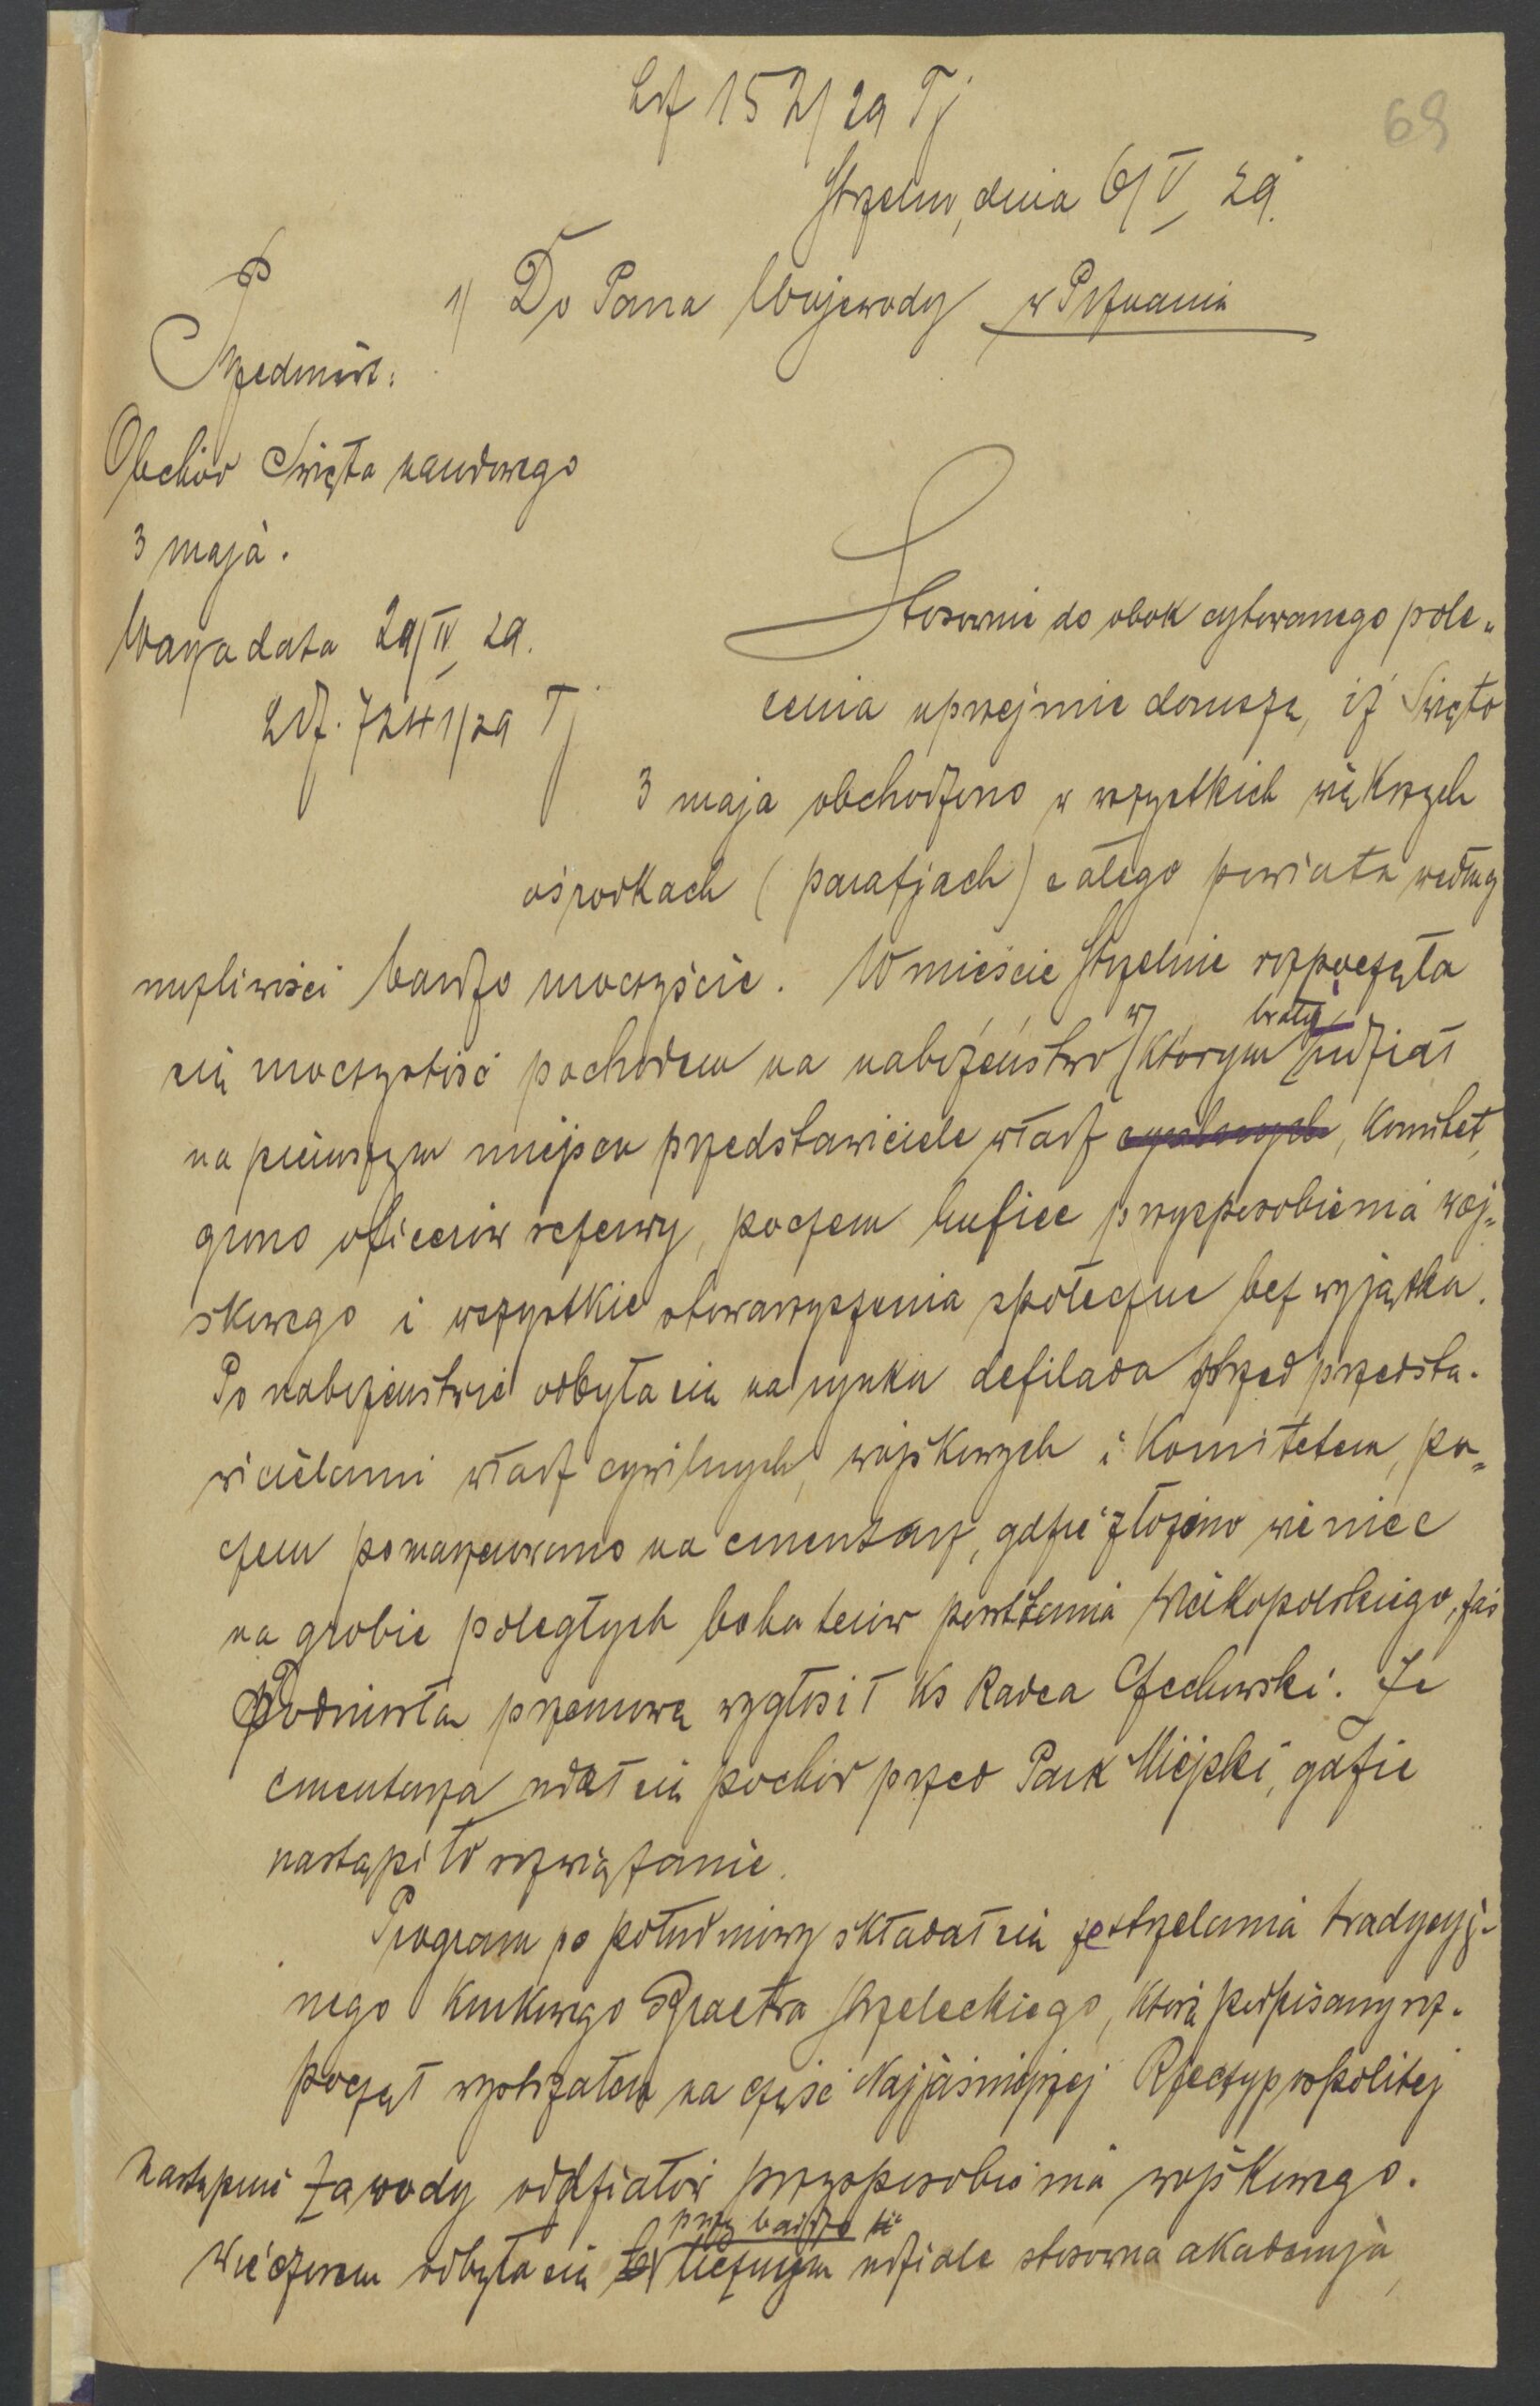 Ldz 152/29 Tj
69
Strzelno, dnia 6/V 29.
1/ Do Pana Wojewody w Poznaniu
Przedmiot:
Obchód Święta narodowego
3 maja.
Wasza data 29/IV 29.
Ldz. 7241/29 Tj
Stosownie do obok cytowanego pole„
cenia uprzejmie donoszę, iż Święto
3 maja obchodzono w wszystkich większych
ośrodkach (parafjach) całego powiatu według
możliwości bardzo uroczyście. W mieście Strzelnie rozpoczęła
się uroczystość pochodem na nabożeństwo w którym brały udział
na pierwszym miejscu przedstawiciele władz cywilnych, Komitet,
grono oficerów rezerwy, poczem hufiec przysposobienia woj„
skowego i wszystkie stowarzyszenia społeczne bez wyjątku.
Po nabożeństwie odbyła się na rynku defilada przed przedsta-
wicielami władz cywilnych, wojskowych i Komitetem, po„
czem pomaszerowano na cmentarz, gdzie złożono wieniec
na grobie poległych bohaterów powstania Wielkopolskiego, zaś
podniosłą przemowę wygłosił Ks Radca Czechowski. Ze
cmentarza udał się pochód przed Park Miejski, gdzie
nastąpiło rozwiązanie.
Program popołudniowy składał się ze strzelania tradycyj-
nego Kurkowego Bractwa Strzeleckiego, które podpisany roz-
począł wystrzałem na cześć Najjaśniejszej Rzeczypospolitej
następnie zawody oddziałów przysposobienia wojskowego.
Wieczorem odbyła się przy bardzo licznym udziale stosowna akademja,